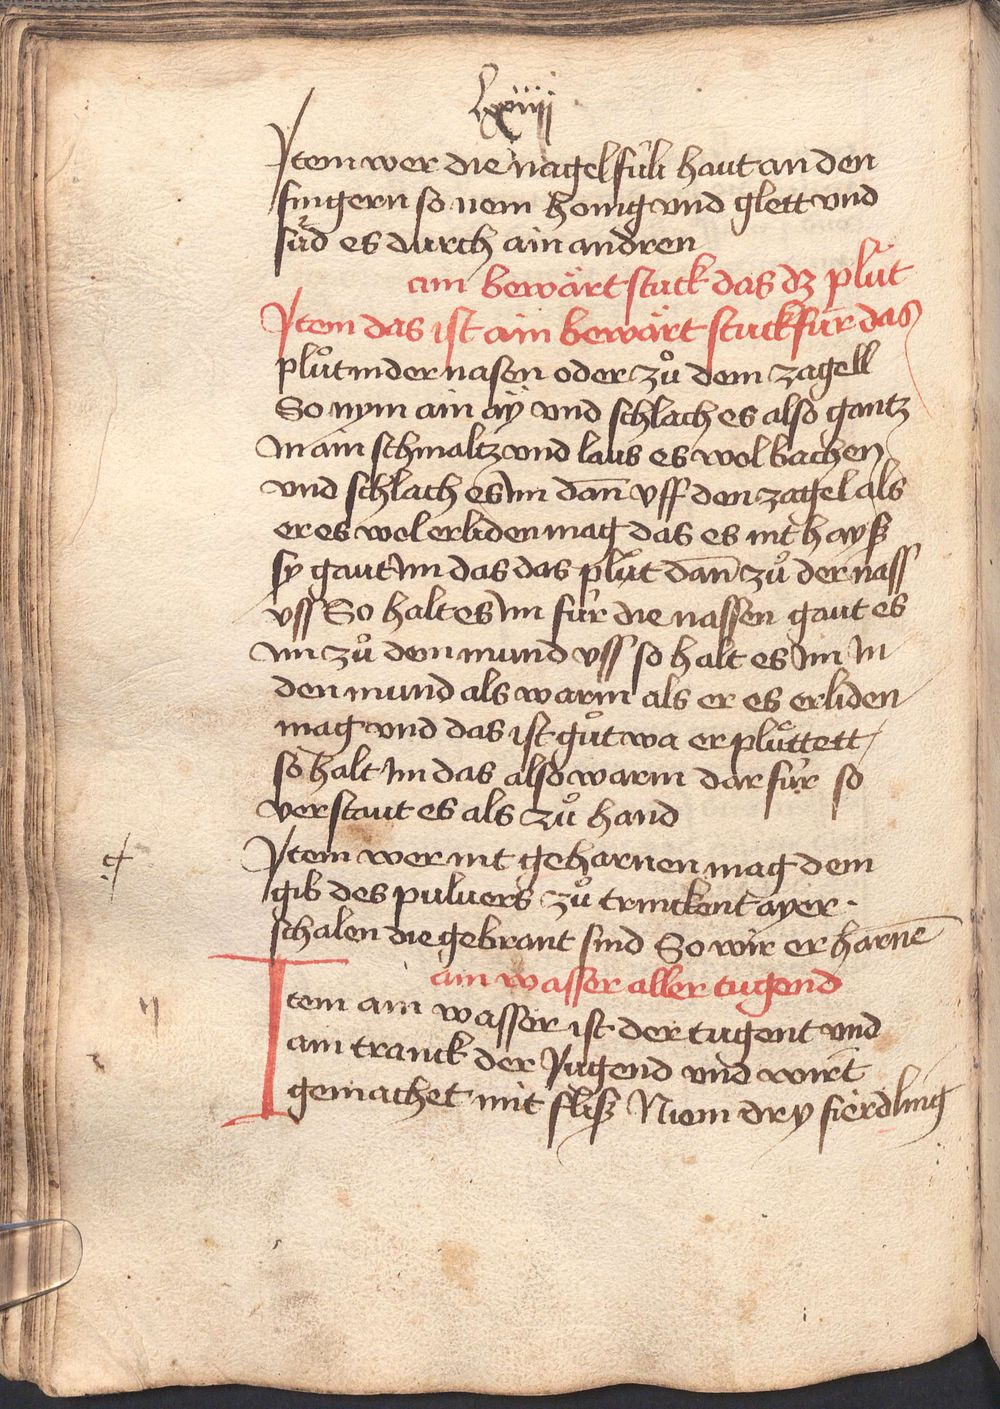 lxiiij
Item wer die nagelfúli haut an den
fingern so nem honig vnd glett vnd
sùd es durch ain andren
ain bewärt stuck das dz plůt
Item das ist ain bewärt stuck fúr das
plůt in der nasen oder zů dem zagell
So nym ain aÿ vnd schlach es also gantz
In ain schmaltz vnd laus es wol bachen
vnd schlach es Im dan̄ vff den zagel als
er es wol erliden mag das es nit hayß
sy gaut Im das das plůt dan̄ zů der nass
vss So halt es Im fúr die nassen gaut es
Im zů dem mund vss so halt es Im In
den mund als warm als er es erliden
mag vnd das ist gůt wa er plůttett
so halt Im das also warm dar fúr so
verstaut es als zů hand
Item wer nit geharnen mag dem
gib des puluers zů trinckent ayer
schalen die gebrant sind So wir er harnē
ain wasser aller tugend
Item ain wasser ist der tugent vnd
ain tranck der Jugend vnd wirt
gemachet mit fliß Niem dry fierdling